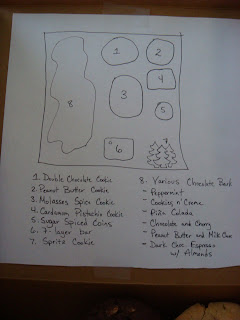 1
2
4
3
8
5
7
6
1. Double Chocolate Cookie
2. Peanut Butter Cookie
3. Molasses Spice Cookie
4. Cardamom Pistachio Cookie
5. Sugar Spiced Coins
6. 7-layer bar
7. Spritz Cookie
8. Various Chocolate Bark
- Peppermint
- Cookies n' Creme
- Piña Colada
- Chocolate and Cherry
- Peanut Butter and Milk Choc
- Dark Choc Espresso
w/ Almonds